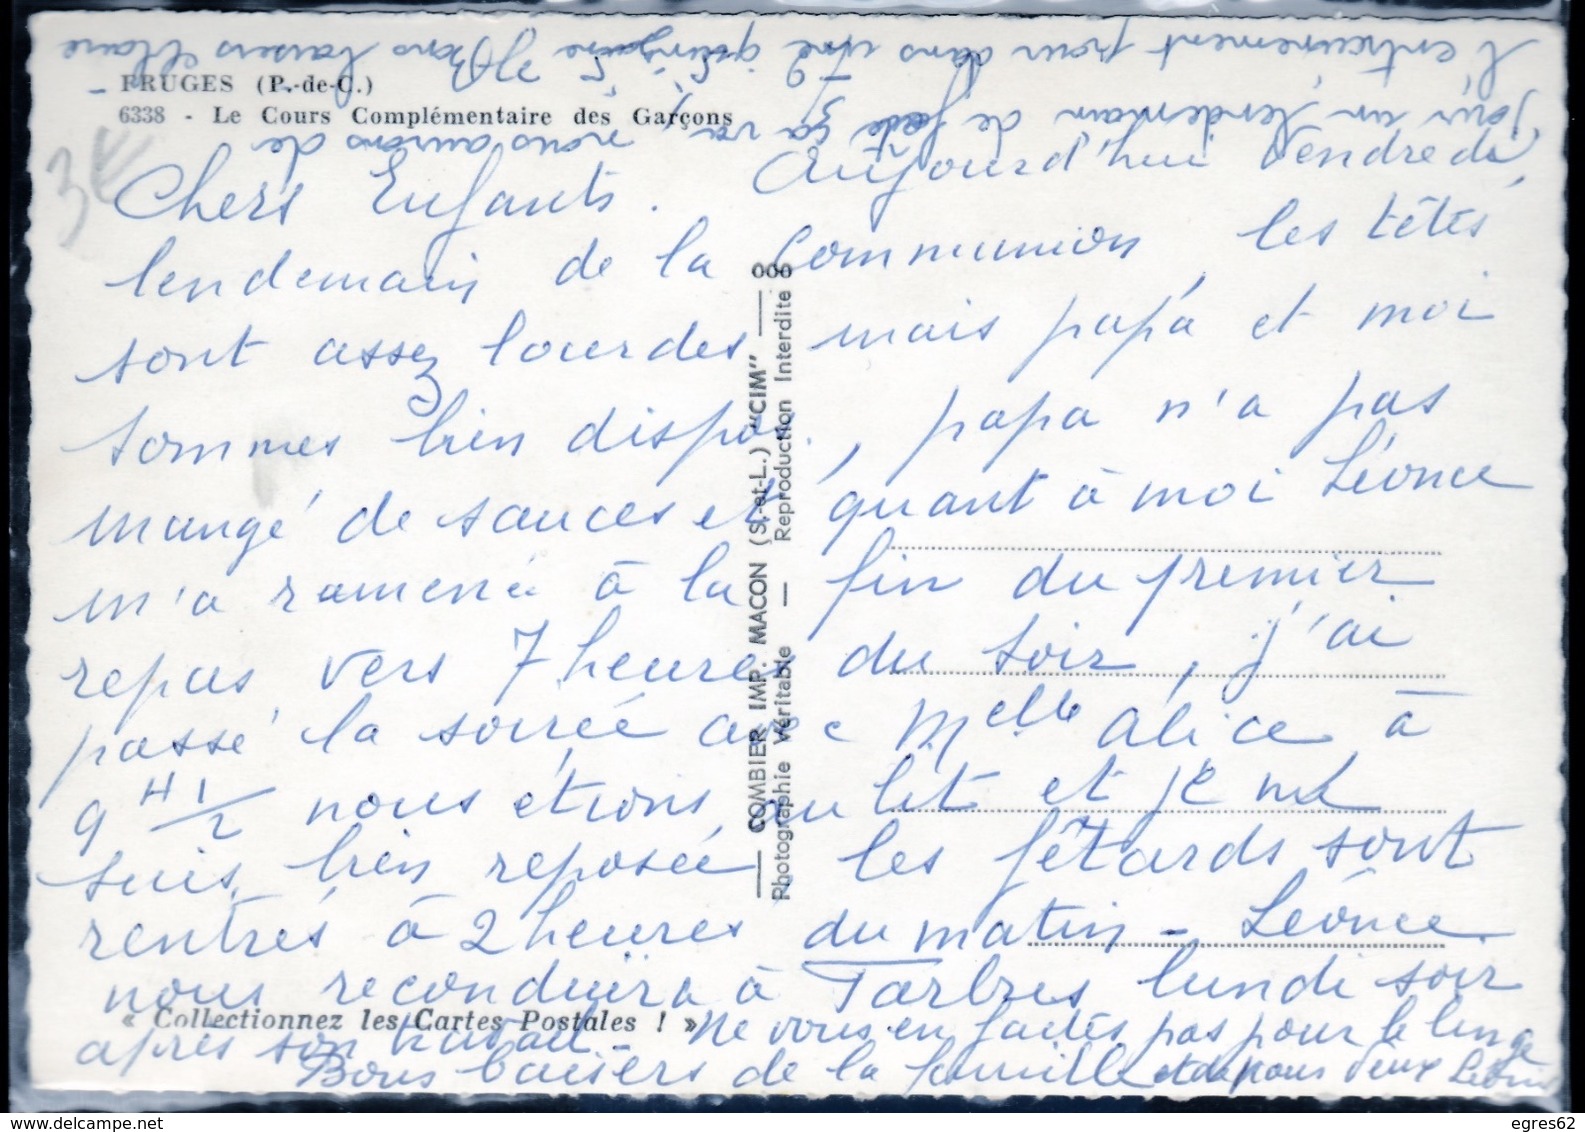 FRUGES (P.-de-C.)
6338 - Le Cours Complémentaire des Garçons
3€
Chers Enfants. Aujourd'hui Vendredi,
lendemain de la Communion, les têtes
sont assez lourdes, mais papa et moi
sommes bien dispos, papa n'a pas
mangé de sauces et quant à moi Léonce
m'a ramené à la fin du premier
repas vers 7 heures du soir, j'ai
passé la soirée avec Melle Alice à
9 H 1/2 nous étions au lit et je me
suis bien reposée les fêtards sont
rentrés à 2 heures du matin - Léonce
nous reconduira à Tarbres lundi soir
après son travail - Ne vous en faites pas pour le linge
Bons baisers de la famille et de nous deux
pour un lendemain de fête ça va, nous aurons de
l'entrainement pour dans une quinzaine Bons baisers
COMBIER IMP. MACON (S.-et-L.) "CIM"
Photographie Véritable — Reproduction Interdite
« Collectionnez les Cartes Postales ! »
egres62